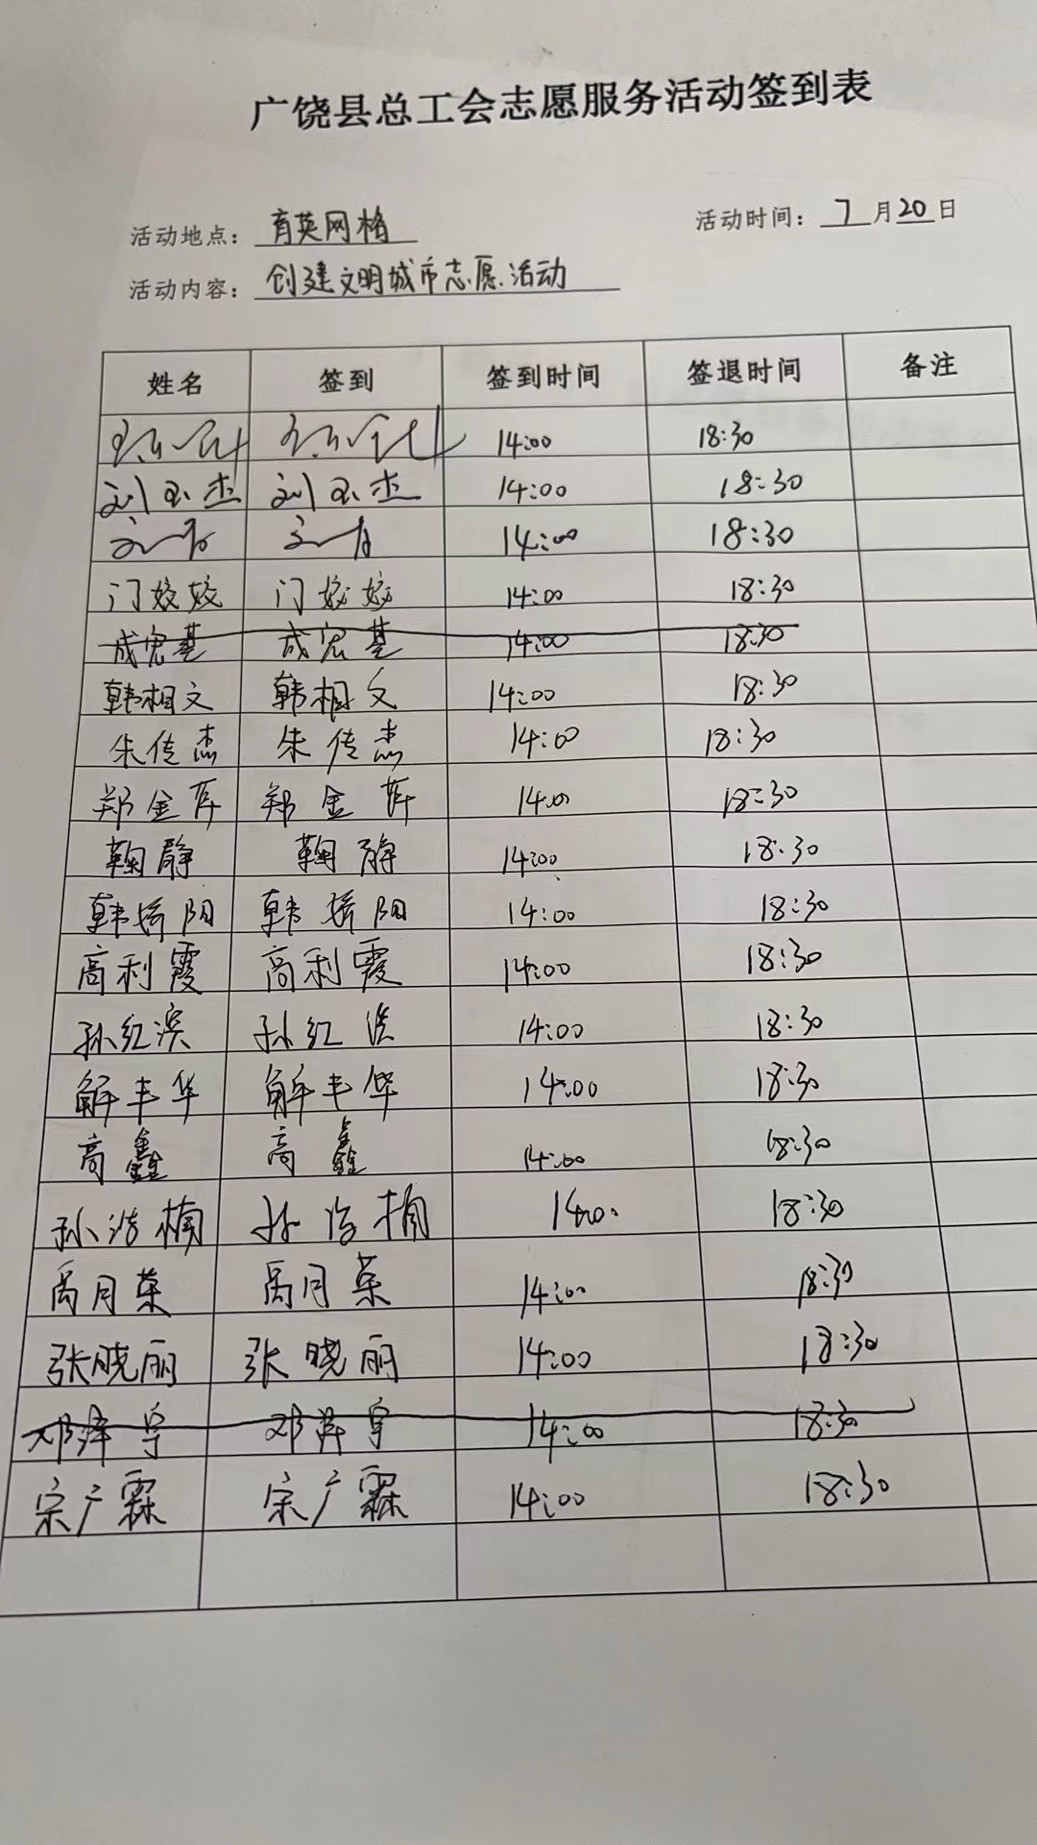 广饶县总工会志愿服务活动签到表
活动地点：育英网格 活动时间：7月20日
活动内容：创建文明城市志愿活动
姓名 签到 签到时间 签退时间 备注
14:00 18:30
刘玉杰 刘玉杰 14:00 18:30
14:00 18:30
门姣姣 门姣姣 14:00 18:30
成宏基 成宏基 14:00 18:30
韩相文 韩相文 14:00 18:30
朱传杰 朱传杰 14:00 18:30
郑金 郑金 14:00 18:30
鞠静 鞠静 14:00 18:30
韩娇阳 韩娇阳 14:00 18:30
高利霞 高利霞 14:00 18:30
孙红滨 孙红滨 14:00 18:30
解丰华 解丰华 14:00 18:30
高鑫 高鑫 14:00 18:30
孙浩楠 孙浩楠 14:00 18:30
禹月荣 禹月荣 14:00 18:30
张晓丽 张晓丽 14:00 18:30
邓泽宇 邓泽宇 14:00 18:30
宗广霖 宗广霖 14:00 18:30